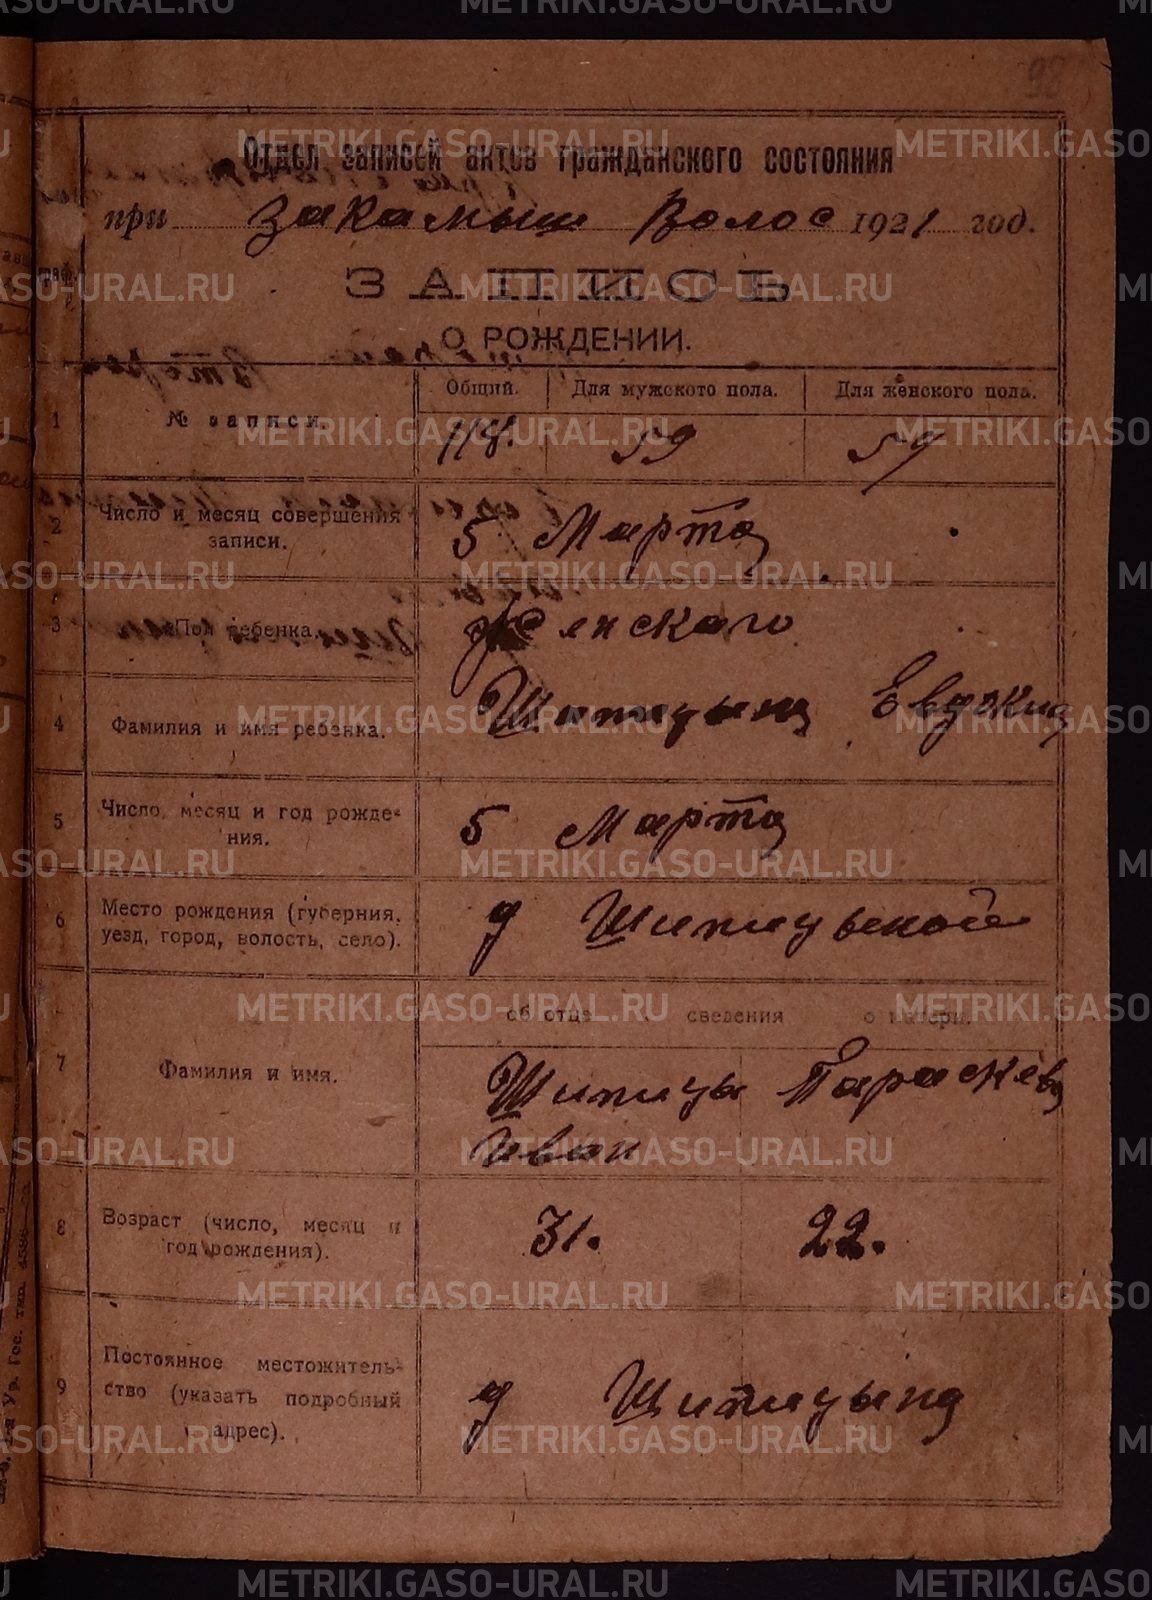 98
Отдел записей актов гражданского состояния
при Закамыш Волос 1921 год.
граф.
ЗАПИСЬ
О РОЖДЕНИИ.
1 № записи Общий. Для мужского пола. Для женского пола.
118. 59 59
2 Число и месяц совершения записи. 5 Марта
3 Пол ребенка. Женского
4 Фамилия и имя ребенка. Шипицына Евдокия
5 Число, месяц и год рожде-
ния. 5 Марта
6 Место рождения (губерния,
уезд, город, волость, село). д Шипицыной
об отце сведения о матери.
7 Фамилия и имя. Шипицы Параскева
Иван
8 Возраст (число, месяц и
год рождения). 31. 22.
9 Постоянное местожитель-
ство (указать подробный
адрес). д Шипицына
METRIKI.GASO-URAL.RU